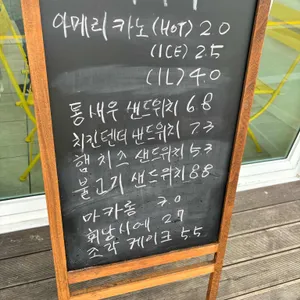 아메리카노(HOT) 2.0
(ICE) 2.5
(1L) 4.0
통새우 샌드위치 6.8
치킨텐더 샌드위치 7.3
햄치즈 샌드위치 5.3
불고기 샌드위치 8.8
마카롱 3.0
휘낭시에 2.7
조각케이크 5.5